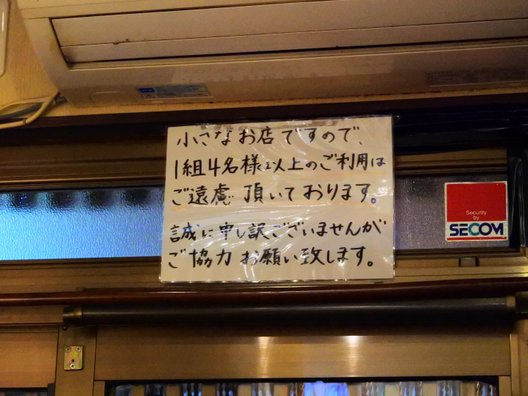 小さなお店ですので、
1組4名様以上のご利用は
ご遠慮頂いております。
誠に申し訳ございませんが
ご協力お願い致します。
Security
by
SECOM